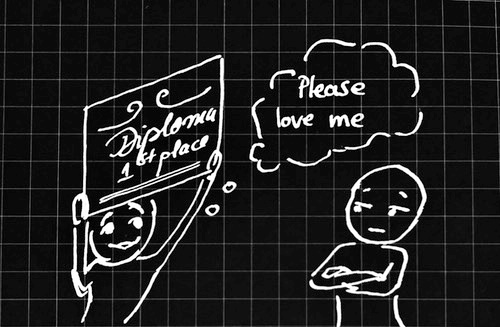 Diploma
1st place
Please
love me